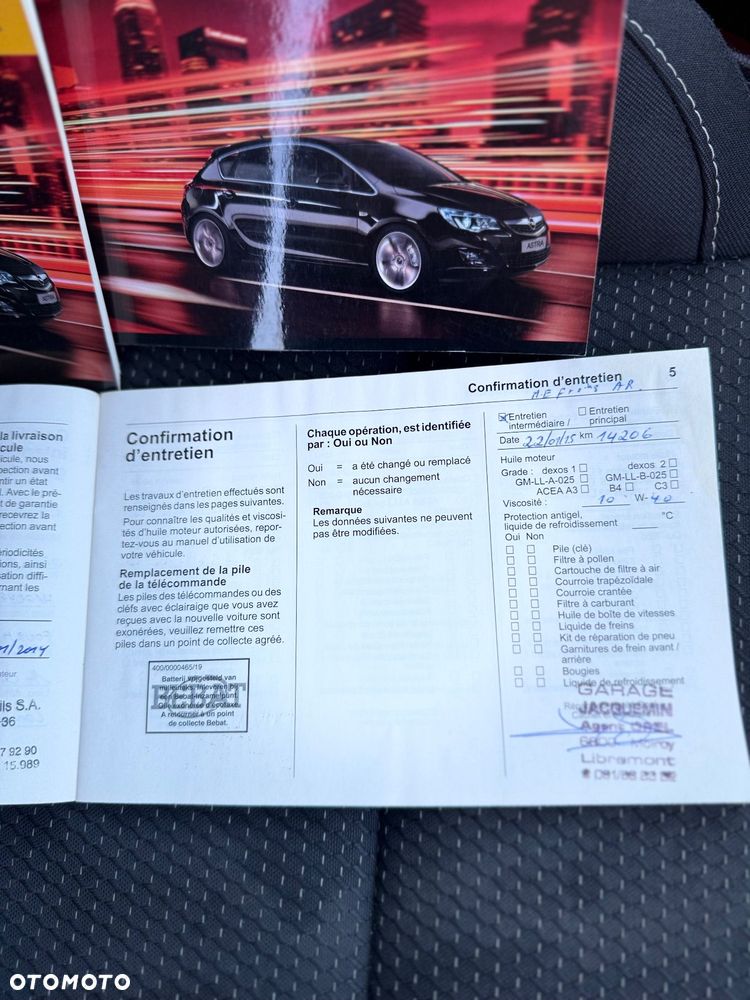 ASTRA
ASTRA
la livraison
cule
cule, nous
pection avant
ntir un état
l. Avec le pré-
t de garantie
recevrez la
ection avant
ériodicités
ons, ainsi
sation diffi-
rnant les
1/2014
ateur
ils S.A.
36
7 92 90
15.989
Confirmation
d'entretien
Les travaux d'entretien effectués sont
renseignés dans les pages suivantes.
Pour connaître les qualités et viscosi-
tés d'huile moteur autorisées, repor-
tez-vous au manuel d'utilisation de
votre véhicule.
Remplacement de la pile
de la télécommande
Les piles des télécommandes ou des
cléfs avec éclairaige que vous avez
reçues avec la nouvelle voiture sont
exonérées, veuillez remettre ces
piles dans un point de collecte agréé.
400/0000465/19
BEBAT
A retourner à un point
de collecte Bebat.
Chaque opération, est identifiée
par : Oui ou Non
Oui = a été changé ou remplacé
Non = aucun changement
nécessaire
Remarque
Les données suivantes ne peuvent
pas être modifiées.
Confirmation d'entretien 5
AR
Entretien
intermédiaire /
Entretien
principal
Date 22/01/15 km 14206
Huile moteur
Grade : dexos 1 dexos 2
GM-LL-A-025 GM-LL-B-025
ACEA A3 B4 C3
Viscosité : 10 W- 40
Protection antigel,
liquide de refroidissement °C
Oui Non
Pile (clé)
Filtre à pollen
Cartouche de filtre à air
Courroie trapézoïdale
Courroie crantée
Filtre à carburant
Huile de boîte de vitesses
Liquide de freins
Kit de réparation de pneu
Garnitures de frein avant /
arrière
Bougies
Liquide de refroidissement
GARAGE
JACQUEMIN
Agent OPEL
Libramont
OTOMOTO